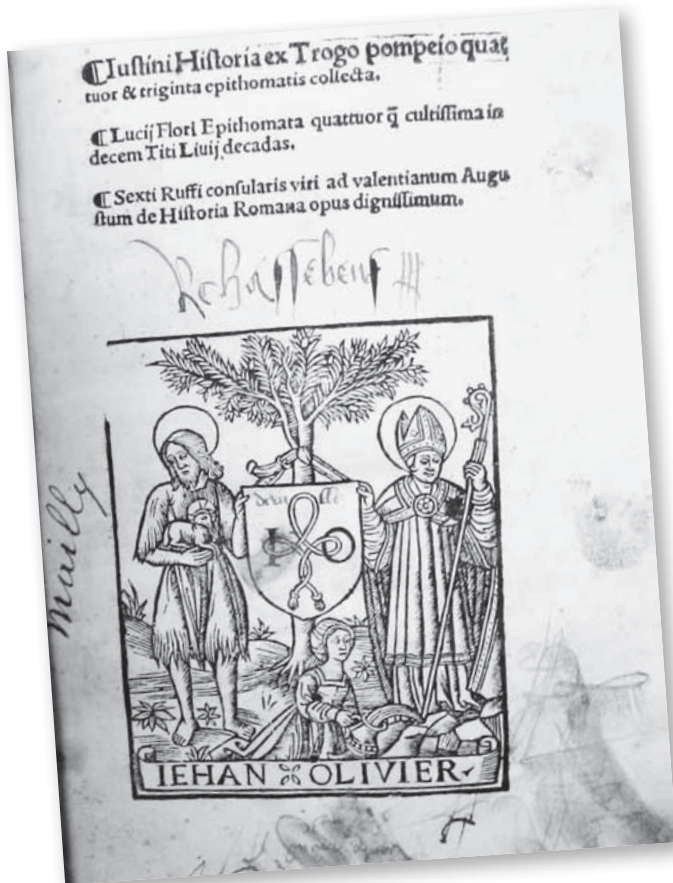 ⸿Iuſtini Hiſtoria ex Trogo pompeio quat
tuor & triginta epithomatis collecta.
⸿Lucij Flori Epithomata quattuor q̄ cultiſſima in
decem Titi Liuij decadas.
⸿Sexti Ruffi conſularis viri ad valentianum Augu
ſtum de Hiſtoria Romana opus digniſſimum.
mailly
IEHAN OLIVIER